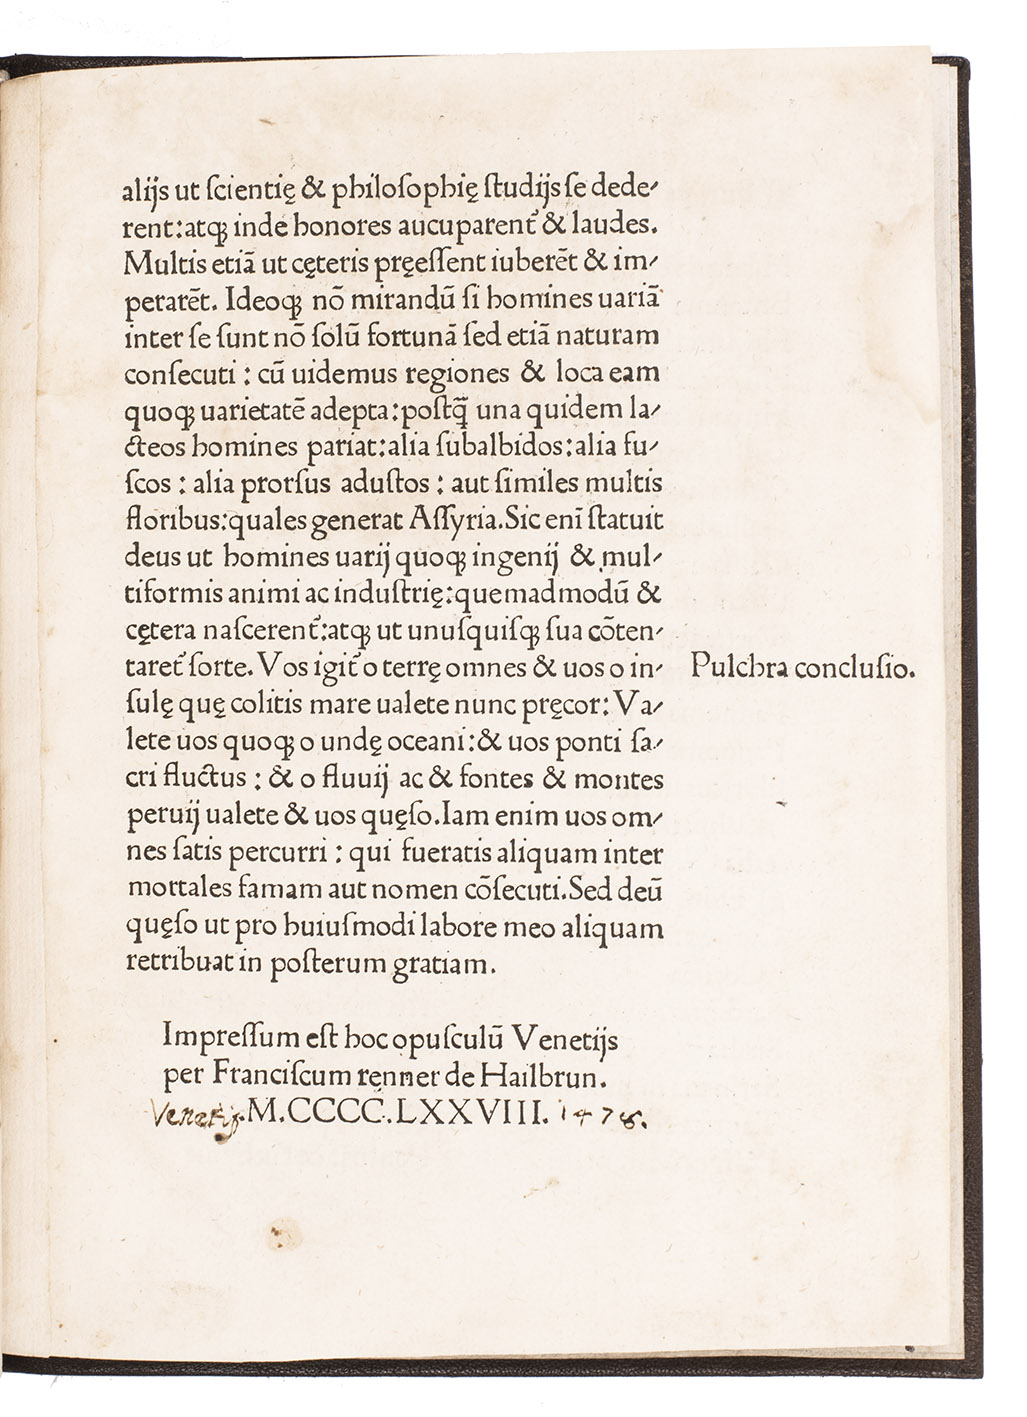 alijs ut ſcientię & philoſophię ſtudijs ſe dede⸗
rent:atqꝫ inde honores aucuparent᷑ & laudes.
Multis etiā ut cęteris pręeſſent iuberēt & im⸗
perarēt. Ideoqꝫ nō mirandū ſi homines uariā
inter ſe ſunt nō ſolū fortunā ſed etiā naturam
conſecuti : cū uidemus regiones & loca eam
quoqꝫ uarietatē adepta:poſtq̄ una quidem la⸗
cteos homines pariat:alia ſubalbidos:alia fu⸗
ſcos : alia prorſus aduſtos : aut ſimiles multis
floribus:quales generat Aſſyria.Sic enī ſtatuit
deus ut homines uarij quoqꝫ ingenij & mul⸗
tiformis animi ac induſtrię:quemadmodū &
cętera naſcerent᷑:atqꝫ ut unuſquiſqꝫ ſua cōten⸗
taret᷑ ſorte. Vos igit᷑ o terrę omnes & uos o in⸗
ſulę quę colitis mare ualete nunc pręcor: Va⸗
lete uos quoqꝫ o undę oceani:& uos ponti ſa⸗
cri fluctus : & o fluuij ac & fontes & montes
peruij ualete & uos quęſo.Iam enim uos om⸗
nes ſatis percurri : qui fueratis aliquam inter
mortales famam aut nomen cōſecuti.Sed deū
quęſo ut pro huiuſmodi labore meo aliquam
retribuat in poſterum gratiam.
Pulchra concluſio.
Impreſſum eſt hoc opuſculū Venetijs
per Franciſcum rẹnner de Hailbrun.
Venetijs.M.CCCC.LXXVIII. 1478.